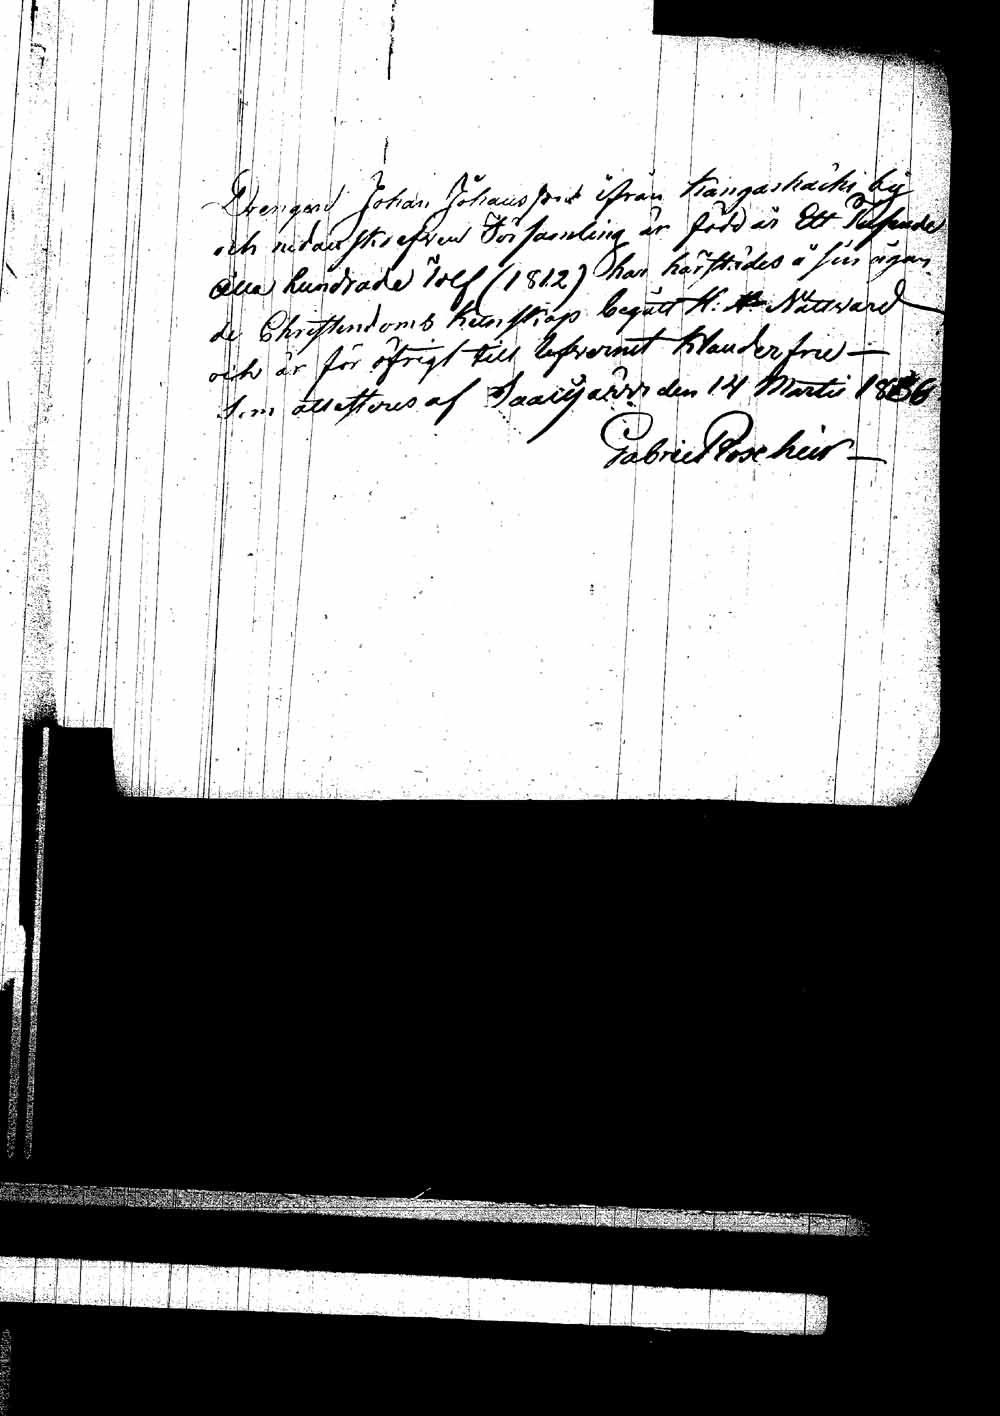 Drengen Johan Johansson ifrån Kangashäcki by
och nedanskrefven Församling är född år Ett Tusende
åtta hundrade Tolf (1812) har härstädes å sin ägan
de Christendoms kunskap begått H: H: Nattward
och är för öfrigt till lefvernet klanderfri —
Som attesteras af Saarijärvi den 14 Martii 1836
Gabriel Roscheir —